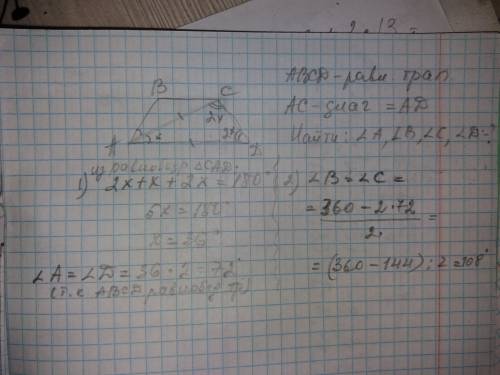 B C
A x 2x 2x D
ABCD-равн. трап.
AC-диаг =AD
Найти: ∠A,∠B,∠C,∠D-?
из равнобедр. △CAD:
1) 2x+x+2x=180°
5x=180°
x=36°
∠A=∠D=36·2=72°
(т.к ABCD равнобед. тр)
2) ∠B=∠C=
= 360-2·72 =
2
=(360-144):2=108°